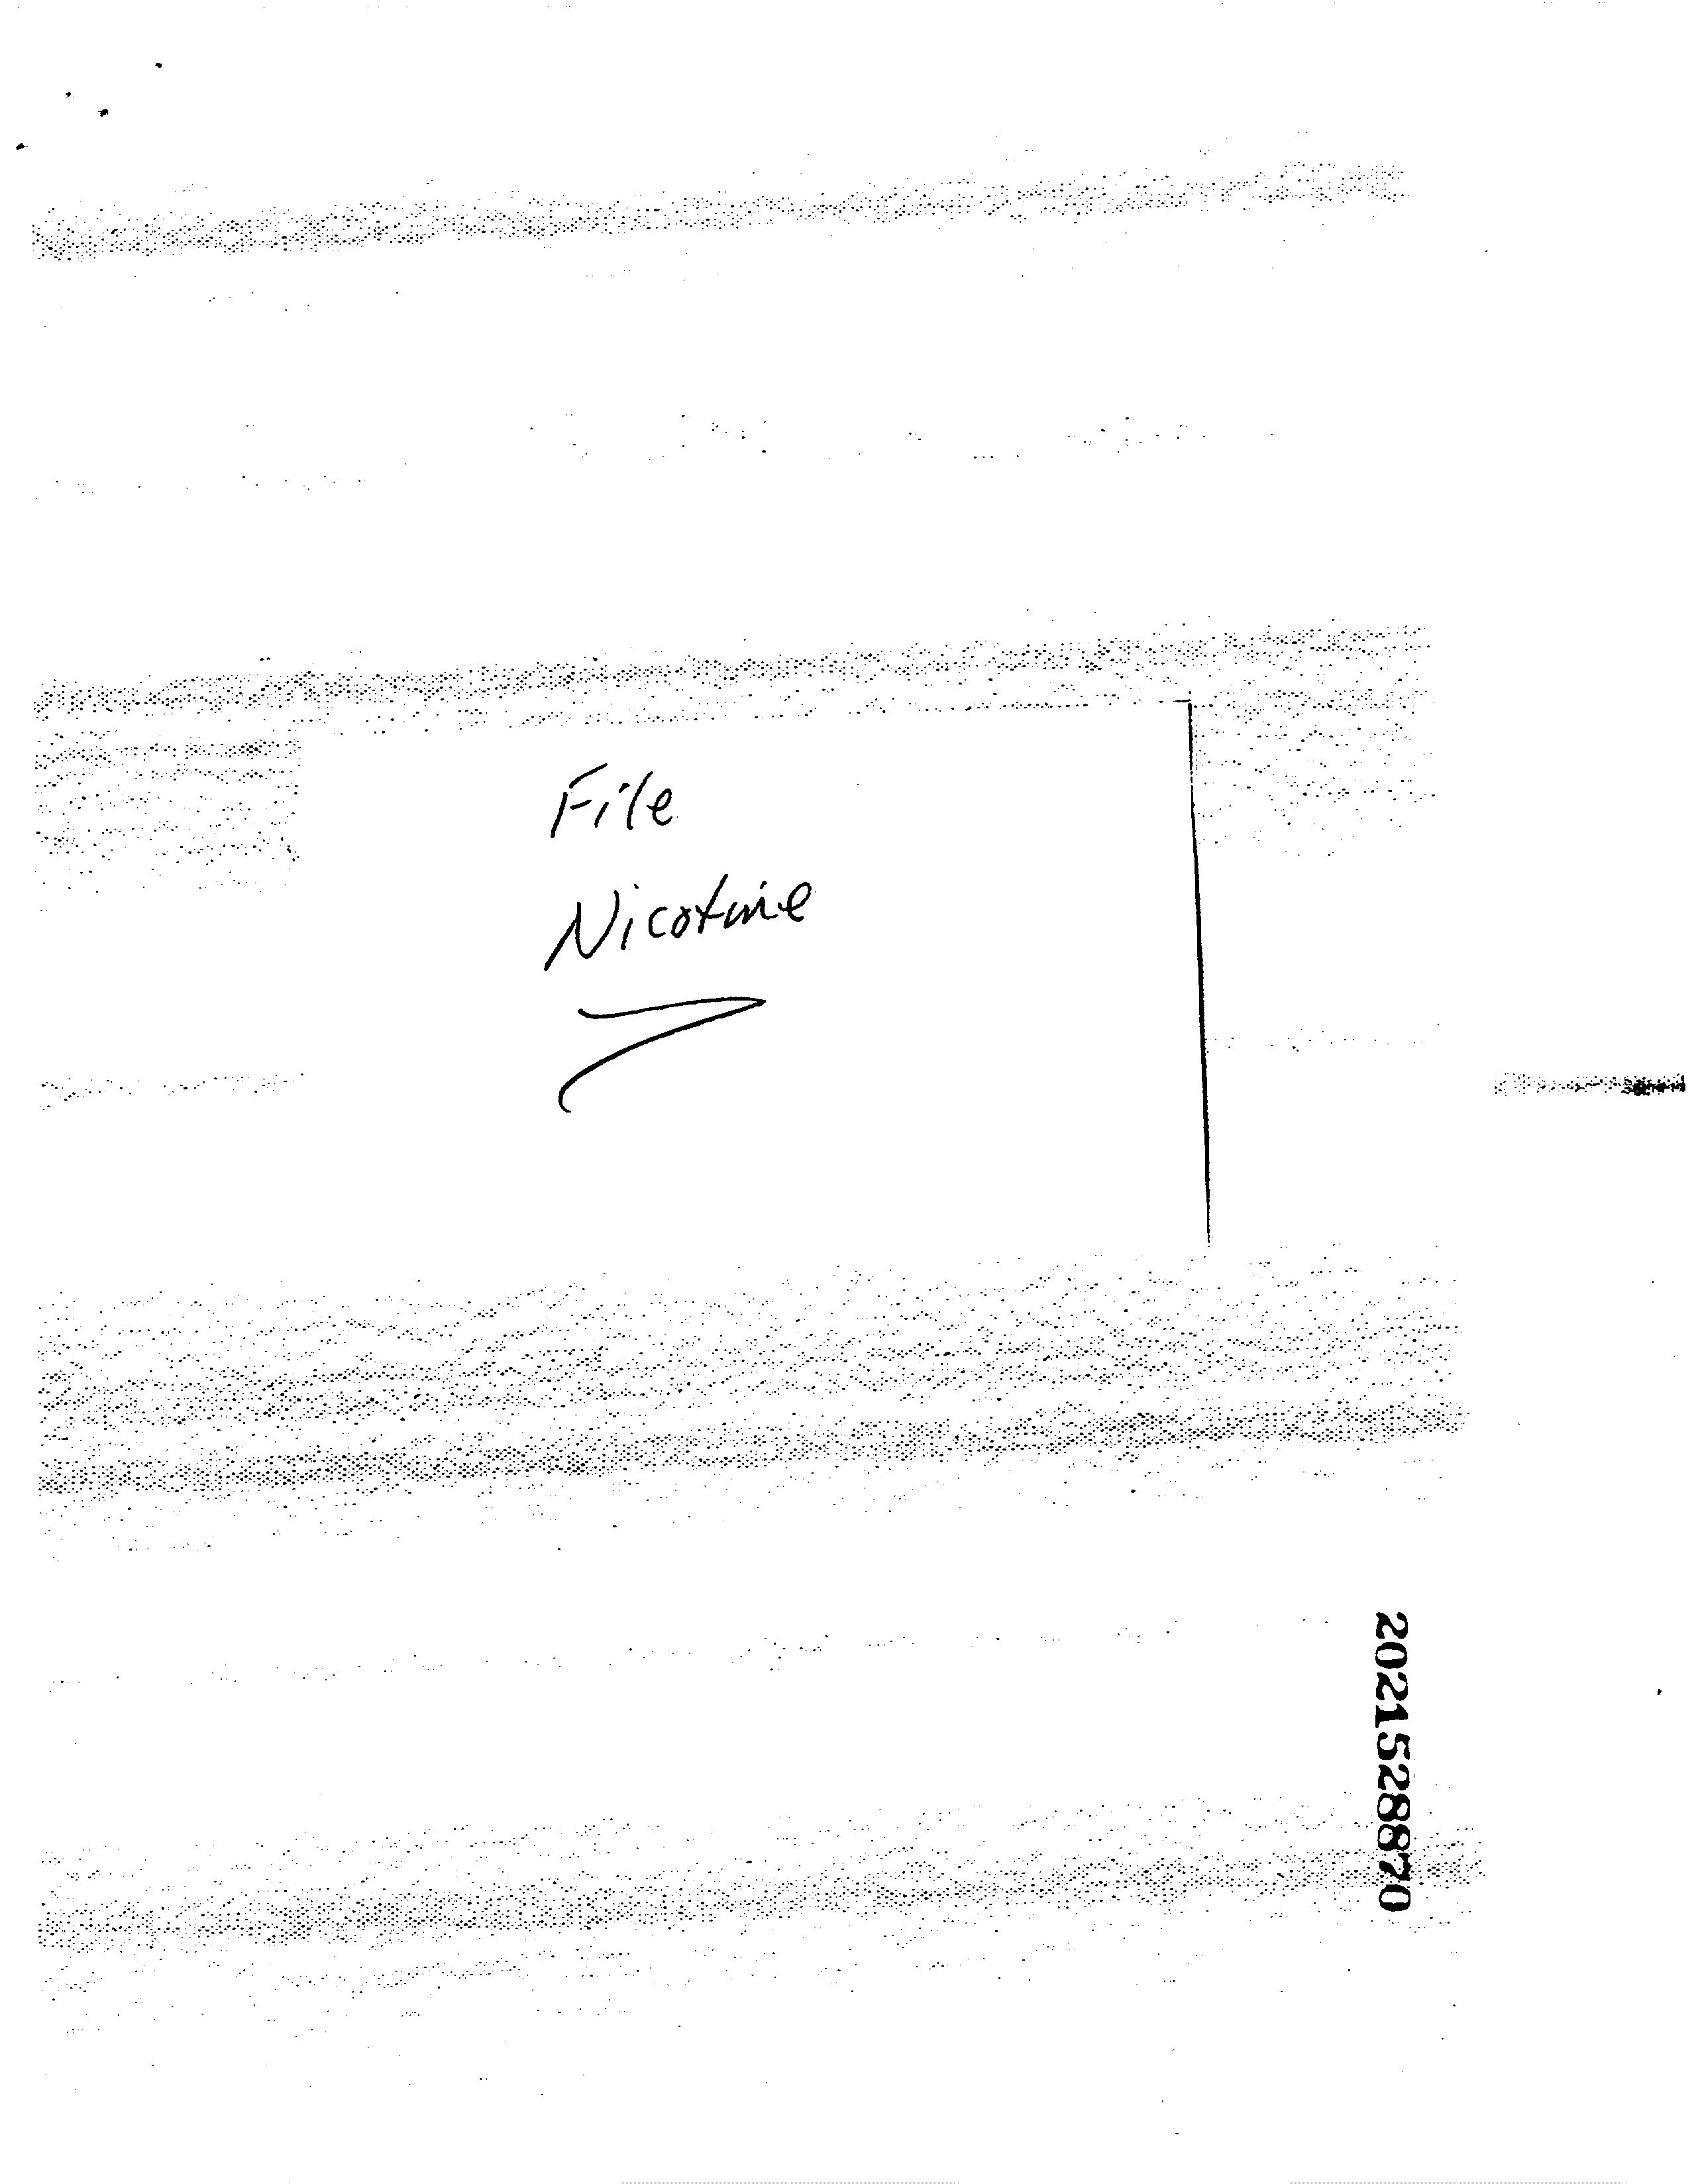 File
Nicotine
2021528870